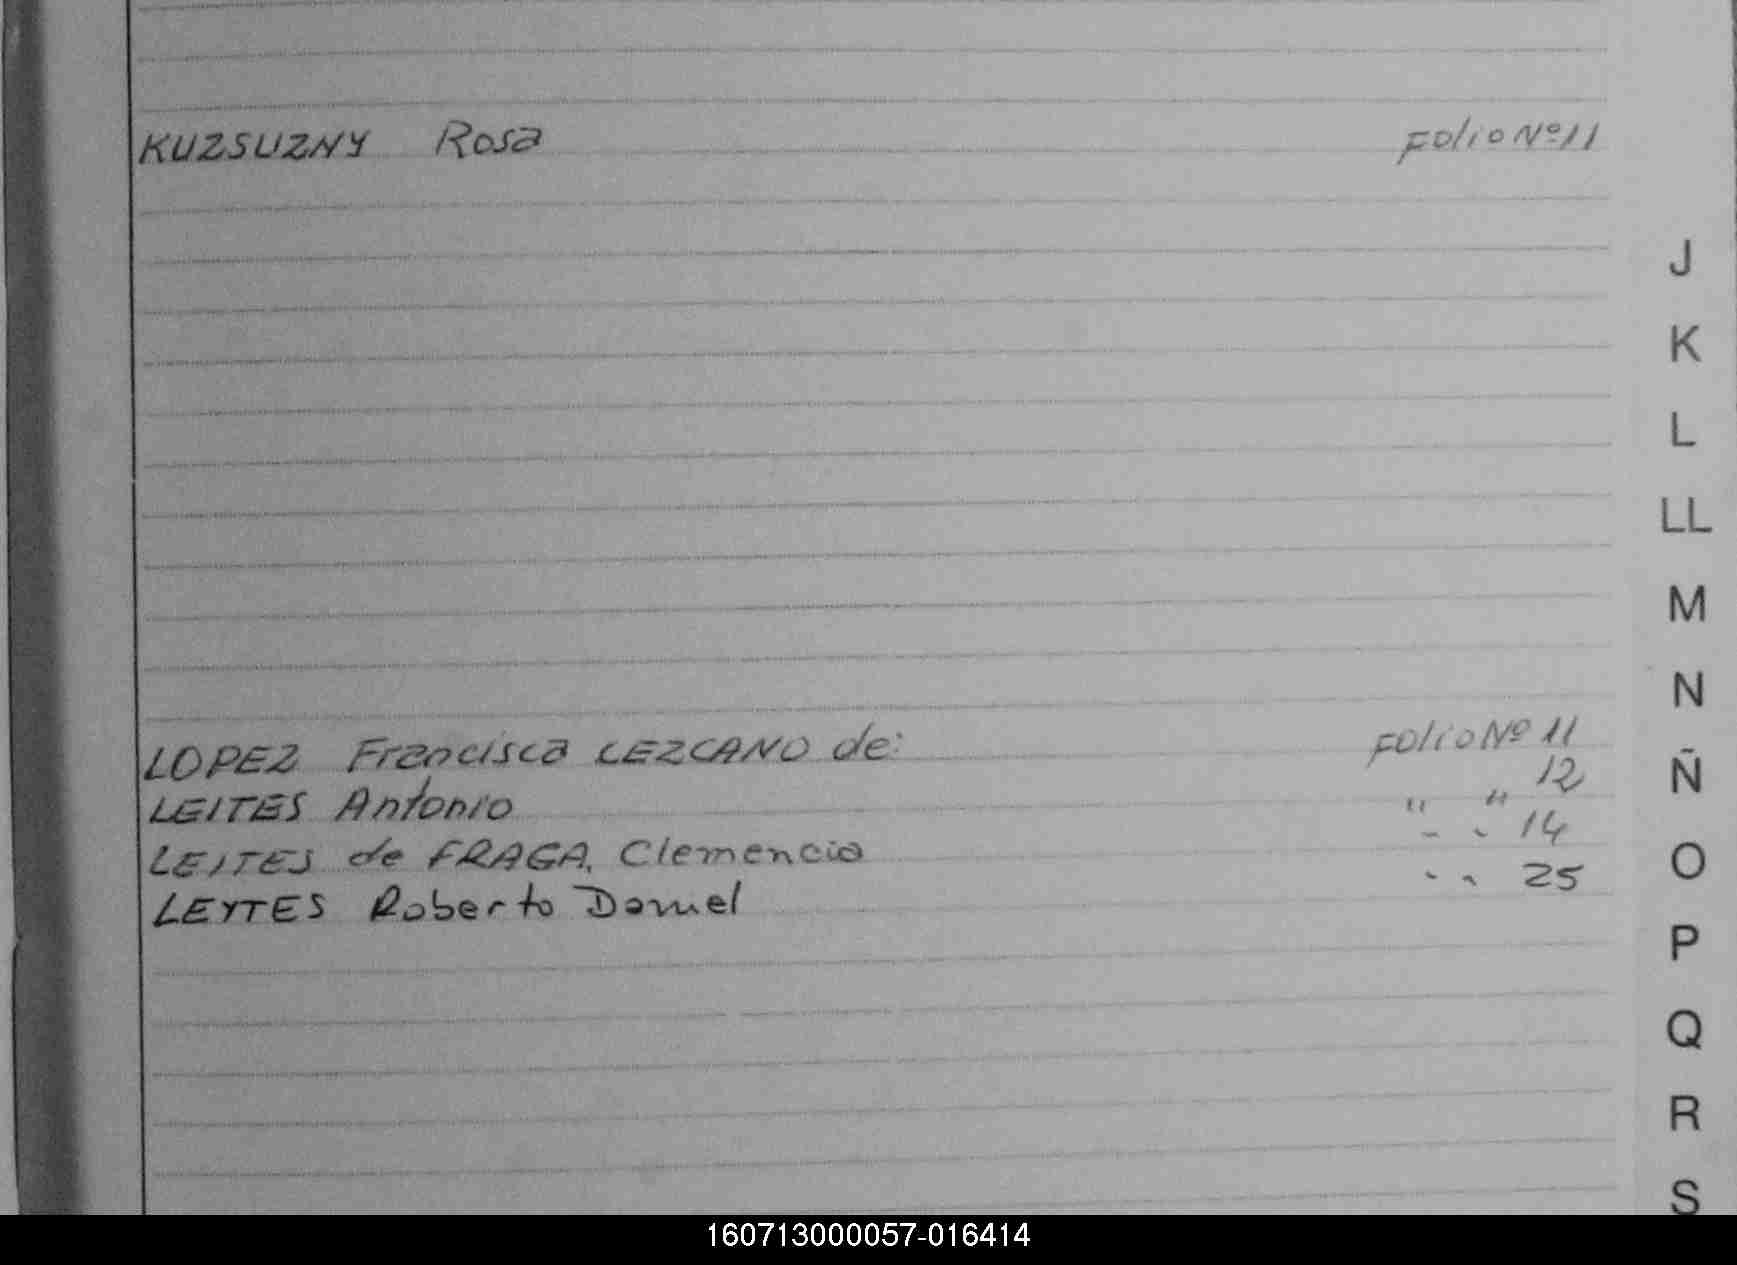 KUZSUZNY Rosa Folio Nº 11
J
K
L
LL
M
N
LOPEZ Francisca LEZCANO de: Folio Nº 11
Ñ
LEITES Antonio " " 12
LEITES de FRAGA, Clemencia " " 14
O
LEYTES Roberto Daniel " " 25
P
Q
R
S
160713000057-016414